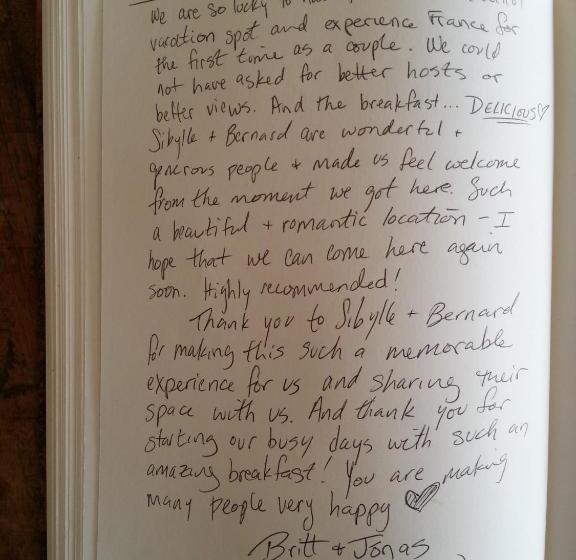 We are so lucky to
vacation spot and experience France for
the first time as a couple. We could
not have asked for better hosts or
better views. And the breakfast... DELICIOUS♡
Sibylle + Bernard are wonderful +
generous people + made us feel welcome
from the moment we got here. Such
a beautiful + romantic location - I
hope that we can come here again
soon. Highly recommended!
Thank you to Sibylle + Bernard
for making this such a memorable
experience for us and sharing their
space with us. And thank you for
starting our busy days with such an
amazing breakfast! You are making
many people very happy ♡
Britt + Jonas